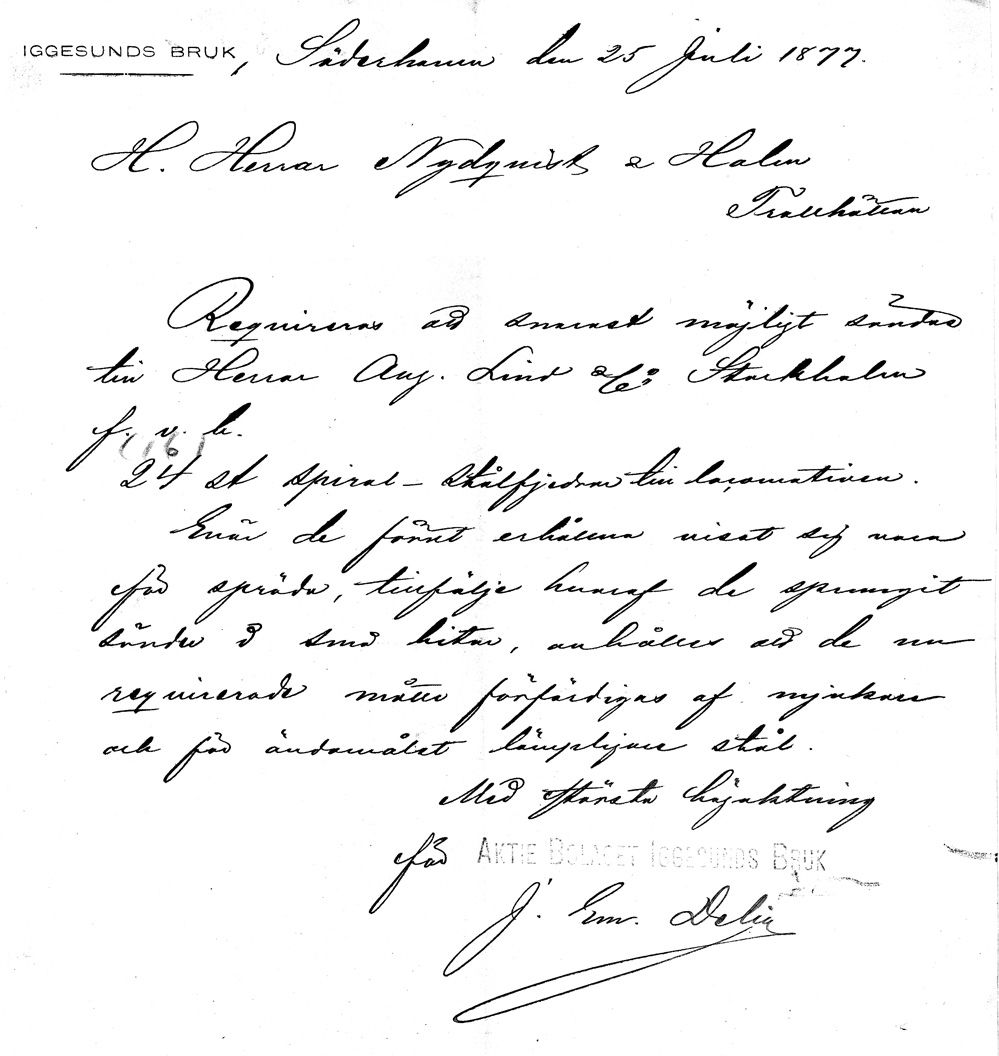 IGGESUNDS BRUK, Söderhamn den 25 Juli 1877.
H. Herrar Nydqvist & Holm
Trollhättan
Requireras att snarast möjligt sändas
till Herrar Aug. Lind & Co; Stockholm
f. v. b.
(16)
24 st spiral-stålfjedrar till locomotiven.
Enär de förut erhållna visat sig vara
för spröda, tillfölje hvaraf de sprungit
sönder i små bitar, anhålles att de nu
requirerade måtte förfärdigas af mjukare
och för ändamålet lämpligare stål.
Med största högaktning
för AKTIE BOLAGET IGGESUNDS BRUK
J. Em. Delin